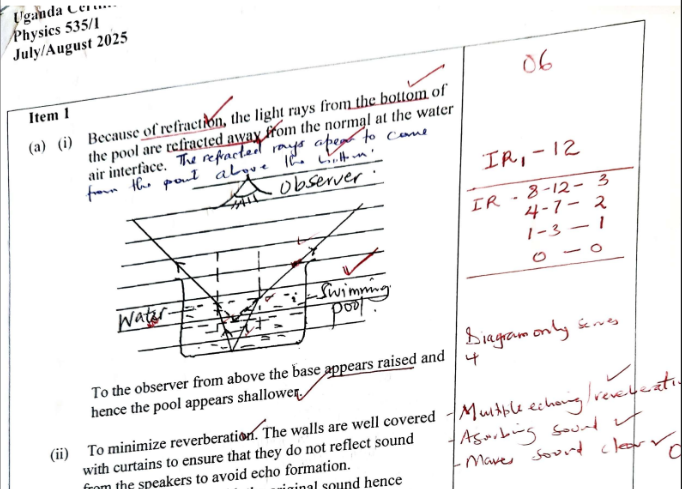 Uganda
Physics 535/1
July/August 2025
Item 1
(a) (i) Because of refraction, the light rays from the bottom of
the pool are refracted away from the normal at the water
air interface. The refracted rays appear to come
from the point above the bottom.
Observer.
Water
Swimming
pool.
To the observer from above the base appears raised and
hence the pool appears shallower.
(ii) To minimize reverberation. The walls are well covered
with curtains to ensure that they do not reflect sound
from the speakers to avoid echo formation.
sound hence
06
IR, - 12
IR - 8-12 - 3
4-7 - 2
1-3 - 1
0 - 0
Diagram only scores
4
- Multiple echoing / reverberati
- Asorbing sound
- Makes sound clear